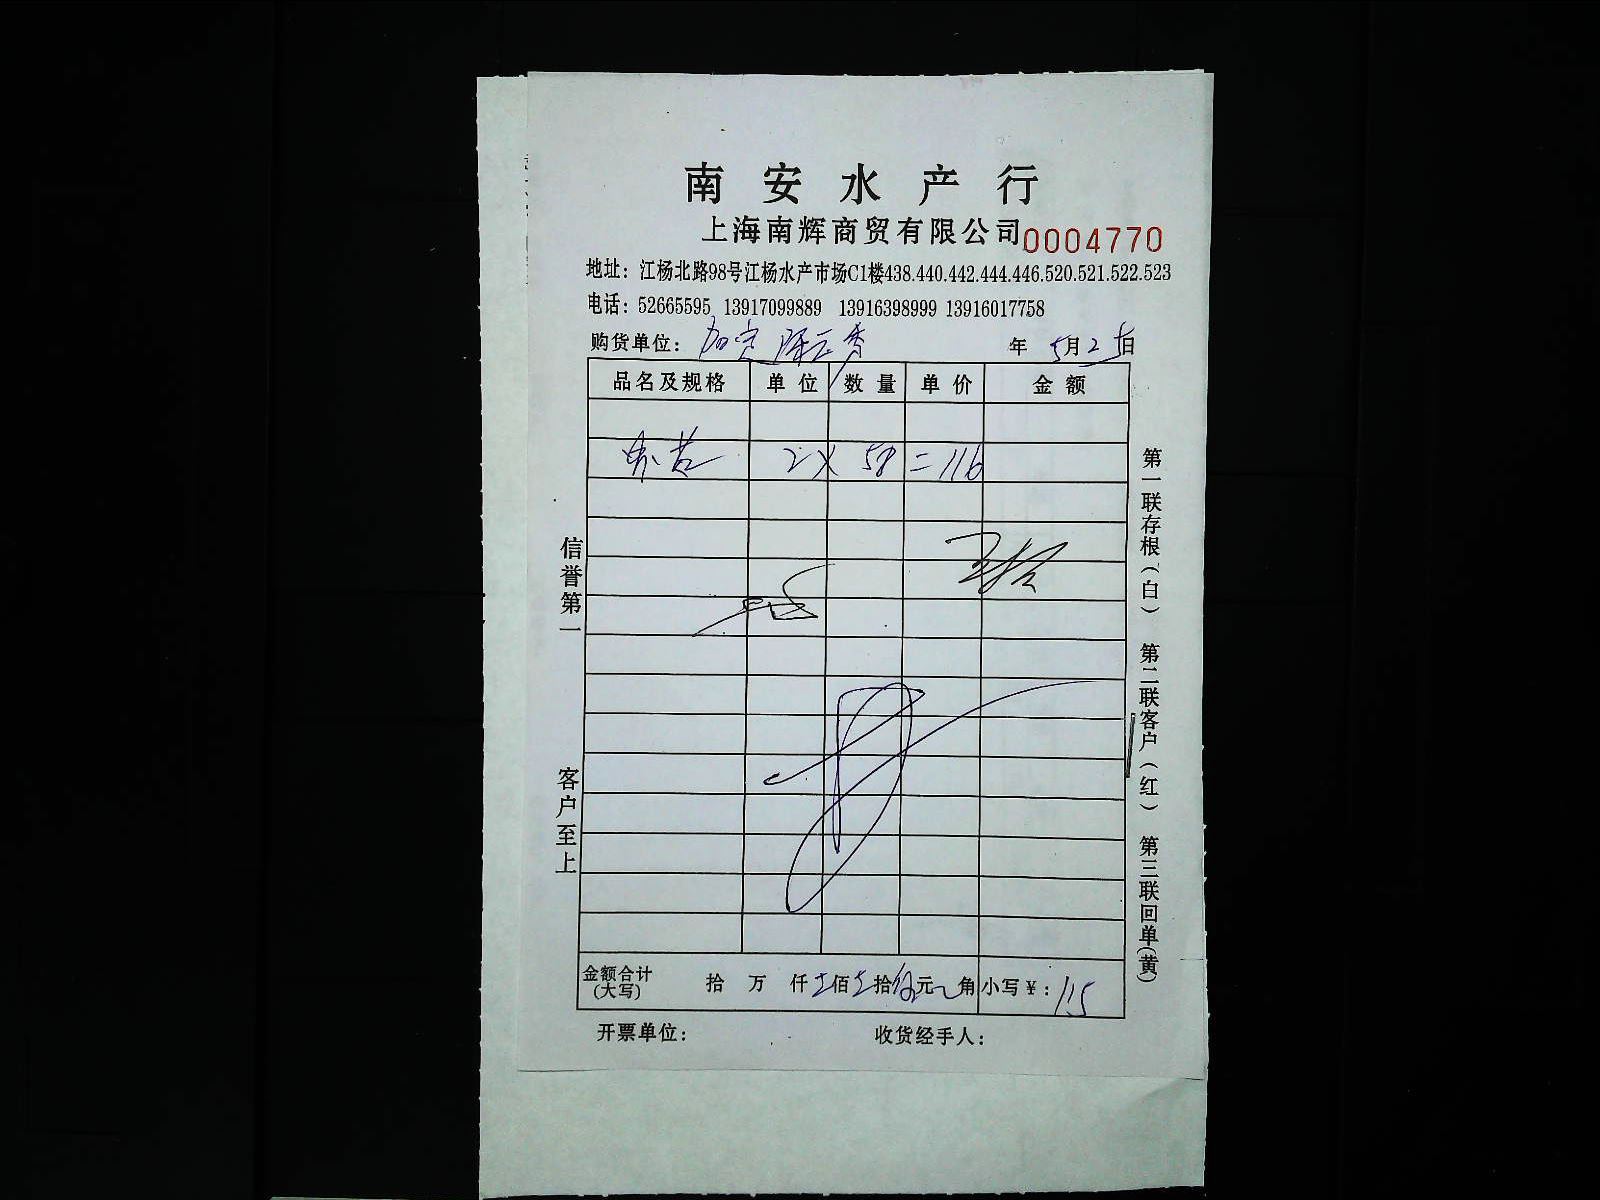 南安水产行
上海南辉商贸有限公司 0004770
地址：江杨北路98号江杨水产市场C1楼438.440.442.444.446.520.521.522.523
电话：52665595 13917099889 13916398999 13916017758
购货单位： 年 5月25日
品名及规格 单位 数量 单价 金额
2 X 58 = 116
金额合计(大写) 拾 万 仟 壹佰 壹拾 伍元 角 小写￥：115
开票单位： 收货经手人：
信誉第一
客户至上
第一联存根（白） 第二联客户（红） 第三联回单(黄)